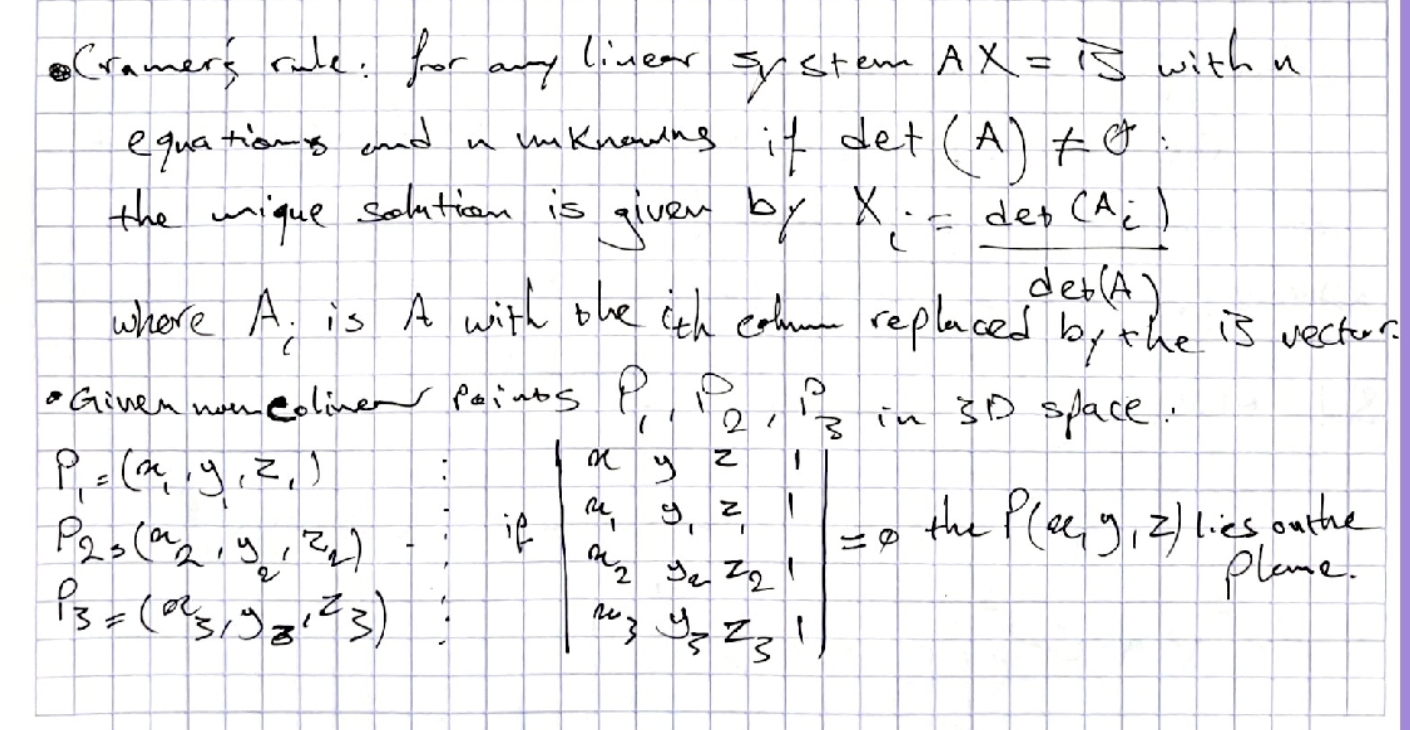 • Cramer's rule: for any linear system AX = B with n
equations and n unknowns if det(A) ≠ 0 :
the unique solution is given by Xᵢ = det(Aᵢ) / det(A)
where Aᵢ is A with the ith column replaced by the B vector.
• Given non colinear points P₁, P₂, P₃ in 3D space:
P₁ = (x₁, y₁, z₁)
P₂ = (x₂, y₂, z₂)
P₃ = (x₃, y₃, z₃)
if | x y z 1 |
| x₁ y₁ z₁ 1 |
| x₂ y₂ z₂ 1 |
| x₃ y₃ z₃ 1 |
= 0 the P(x, y, z) lies on the
plane.